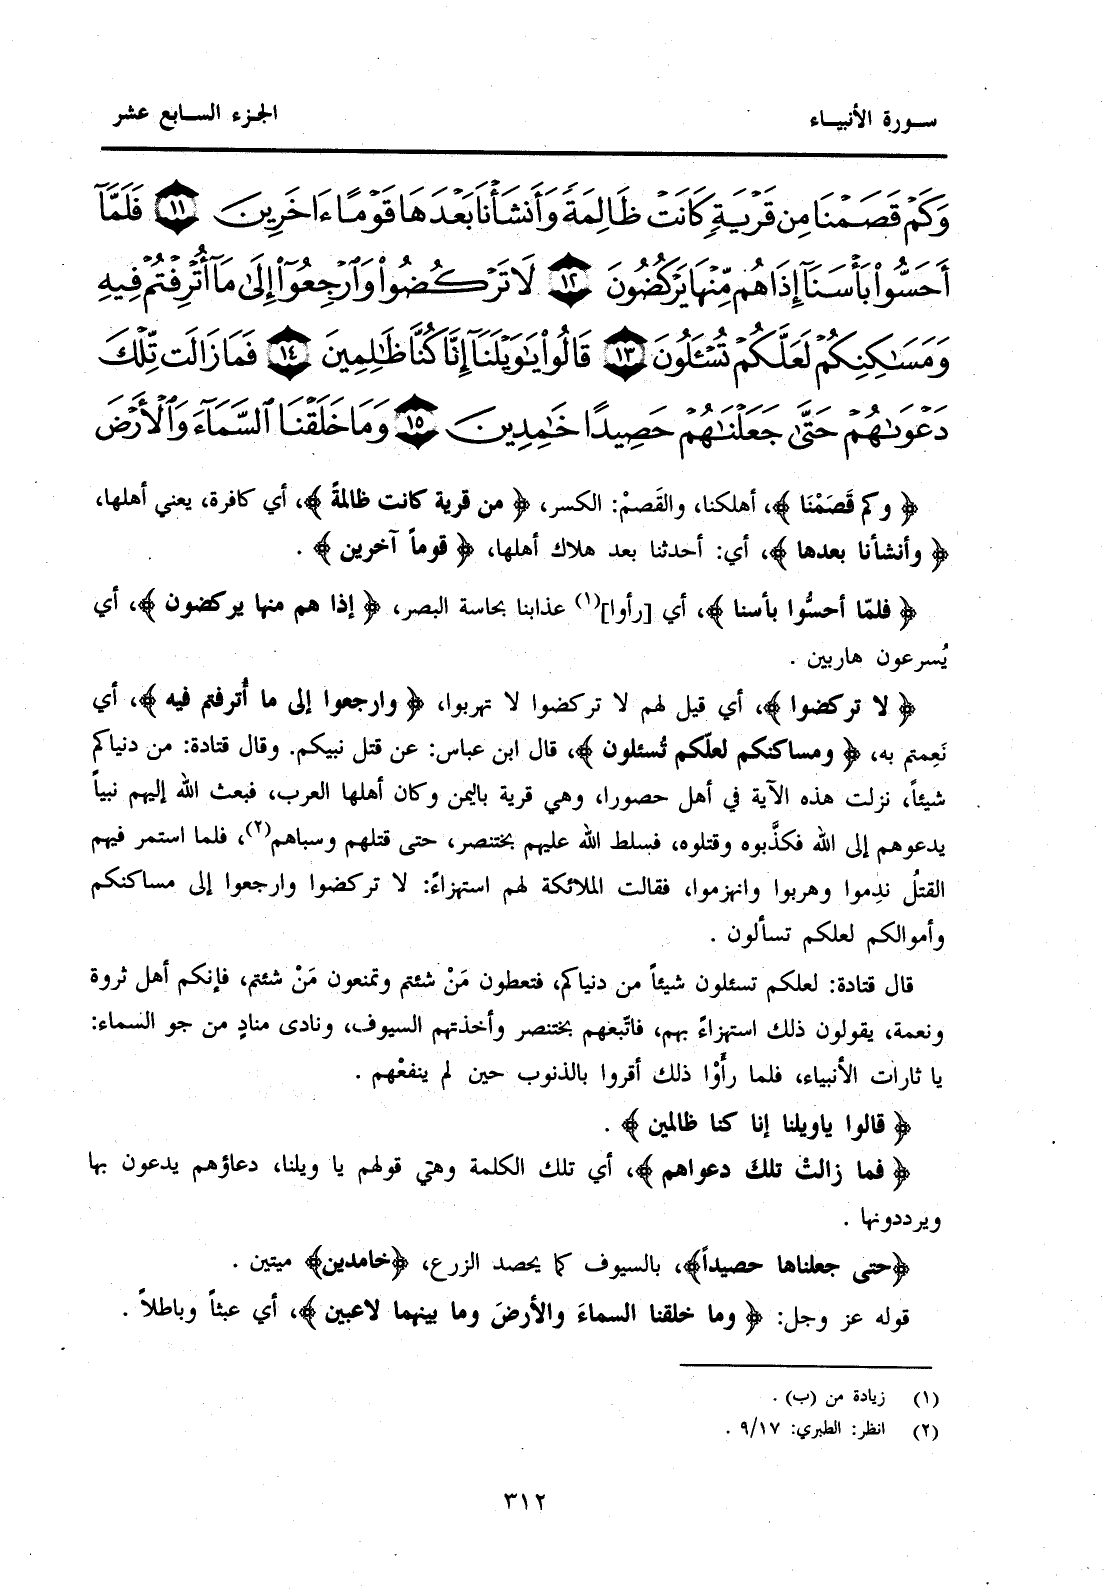 سورة الأنبياء
الجزء السابع عشر
وَكَمْ قَصَمْنَا مِن قَرْيَةٍ كَانَتْ ظَالِمَةً وَأَنشَأْنَا بَعْدَهَا قَوْمًا ءَاخَرِينَ ١١ فَلَمَّآ
أَحَسُّوا۟ بَأْسَنَآ إِذَا هُم مِّنْهَا يَرْكُضُونَ ١٢ لَا تَرْكُضُوا۟ وَٱرْجِعُوٓا۟ إِلَىٰ مَآ أُتْرِفْتُمْ فِيهِ
وَمَسَـٰكِنِكُمْ لَعَلَّكُمْ تُسْـَٔلُونَ ١٣ قَالُوا۟ يَـٰوَيْلَنَآ إِنَّا كُنَّا ظَـٰلِمِينَ ١٤ فَمَا زَالَت تِّلْكَ
دَعْوَىٰهُمْ حَتَّىٰ جَعَلْنَـٰهُمْ حَصِيدًا خَـٰمِدِينَ ١٥ وَمَا خَلَقْنَا ٱلسَّمَآءَ وَٱلْأَرْضَ
﴿ وكم قَصَمْنَا ﴾، أهلكنا، والقَصمْ: الكسر، ﴿ من قرية كانت ظالمةً ﴾، أي كافرة، يعني أهلها،
﴿ وأنشأنا بعدها ﴾، أي: أحدثنا بعد هلاك أهلها، ﴿ قوماً آخرين ﴾ .
﴿ فلمّا أحسُّوا بأسنا ﴾، أي [رأوا](١) عذابنا بحاسة البصر، ﴿ إذا هم منها يركضون ﴾، أي
يُسرعون هاربين .
﴿ لا تركضوا ﴾، أي قيل لهم لا تركضوا لا تهربوا، ﴿ وارجعوا إلى ما أُترفتم فيه ﴾، أي
نَعِمتم به، ﴿ ومساكنكم لعلّكم تُسئلون ﴾، قال ابن عباس: عن قتل نبيكم. وقال قتادة: من دنياكم
شيئاً، نزلت هذه الآية في أهل حصورا، وهي قرية باليمن وكان أهلها العرب، فبعث الله إليهم نبياً
يدعوهم إلى الله فكذَّبوه وقتلوه، فسلط الله عليهم بختنصر، حتى قتلهم وسباهم(٢)، فلما استمر فيهم
القتلُ ندِموا وهربوا وانهزموا، فقالت الملائكة لهم استهزاءً: لا تركضوا وارجعوا إلى مساكنكم
وأموالكم لعلكم تسألون .
قال قتادة: لعلكم تسئلون شيئاً من دنياكم، فتعطون مَنْ شئتم وتمنعون مَنْ شئتم، فإنكم أهل ثروة
ونعمة، يقولون ذلك استهزاءً بهم، فاتّبعهم بختنصر وأخذتهم السيوف، ونادى منادٍ من جو السماء:
يا ثارات الأنبياء، فلما رأَوْا ذلك أقروا بالذنوب حين لم ينفعْهم .
﴿ قالوا ياويلنا إنا كنا ظالمين ﴾ .
﴿ فما زالتْ تلكَ دعواهم ﴾، أي تلك الكلمة وهي قولهم يا ويلنا، دعاؤهم يدعون بها
ويرددونها .
﴿حتى جعلناها حصيداً﴾، بالسيوف كما يحصد الزرع، ﴿خامدين﴾ ميتين .
قوله عز وجل: ﴿ وما خلقنا السماءَ والأرضَ وما بينهما لاعبين ﴾، أي عبثاً وباطلاً .
(١) زيادة من (ب) .
(٢) انظر: الطبري: ٩/١٧ .
٣١٢